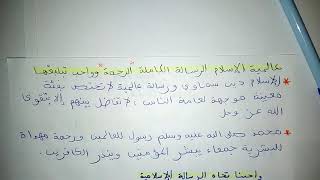 عالمية الإسلام الرسالة الكاملة الرحمة وواجب تبليغها
* الإسلام دين سماوي ورسالة عالمية لا تختص بيئة
معينة موجهة لعامة الناس، لا تفاضل بينهم إلا بتقوى
الله عز وجل
* محمد صلى الله عليه وسلم رسول للعالمين ورحمة مهداة
للبشرية جمعاء يبشر المؤمنين وينذر الكافرين.
واجبنا تجاه الرسالة الإسلامية